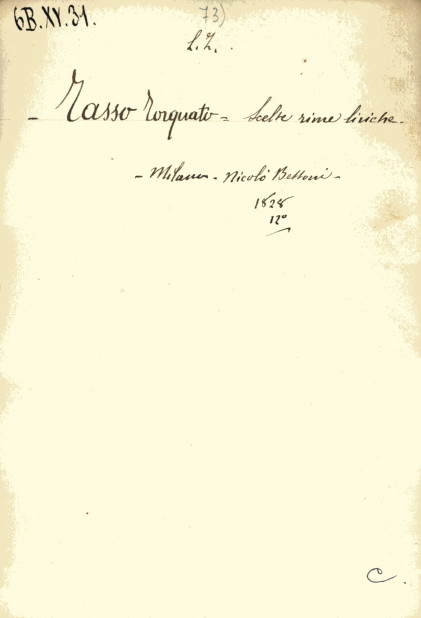 6B.XV.31.
73)
L.Z.
- Tasso Torquato = Scelte rime liriche -
- Milano - Nicolò Bettoni -
1828
12º
C.